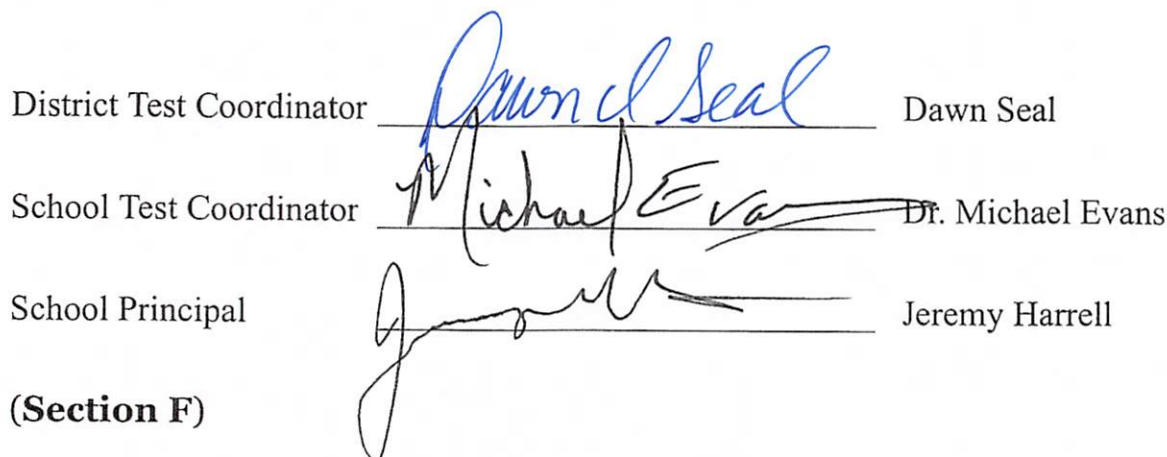 District Test Coordinator Dawn d Seal Dawn Seal
School Test Coordinator Michael Evans Dr. Michael Evans
School Principal Jeremy Harrell
(Section F)